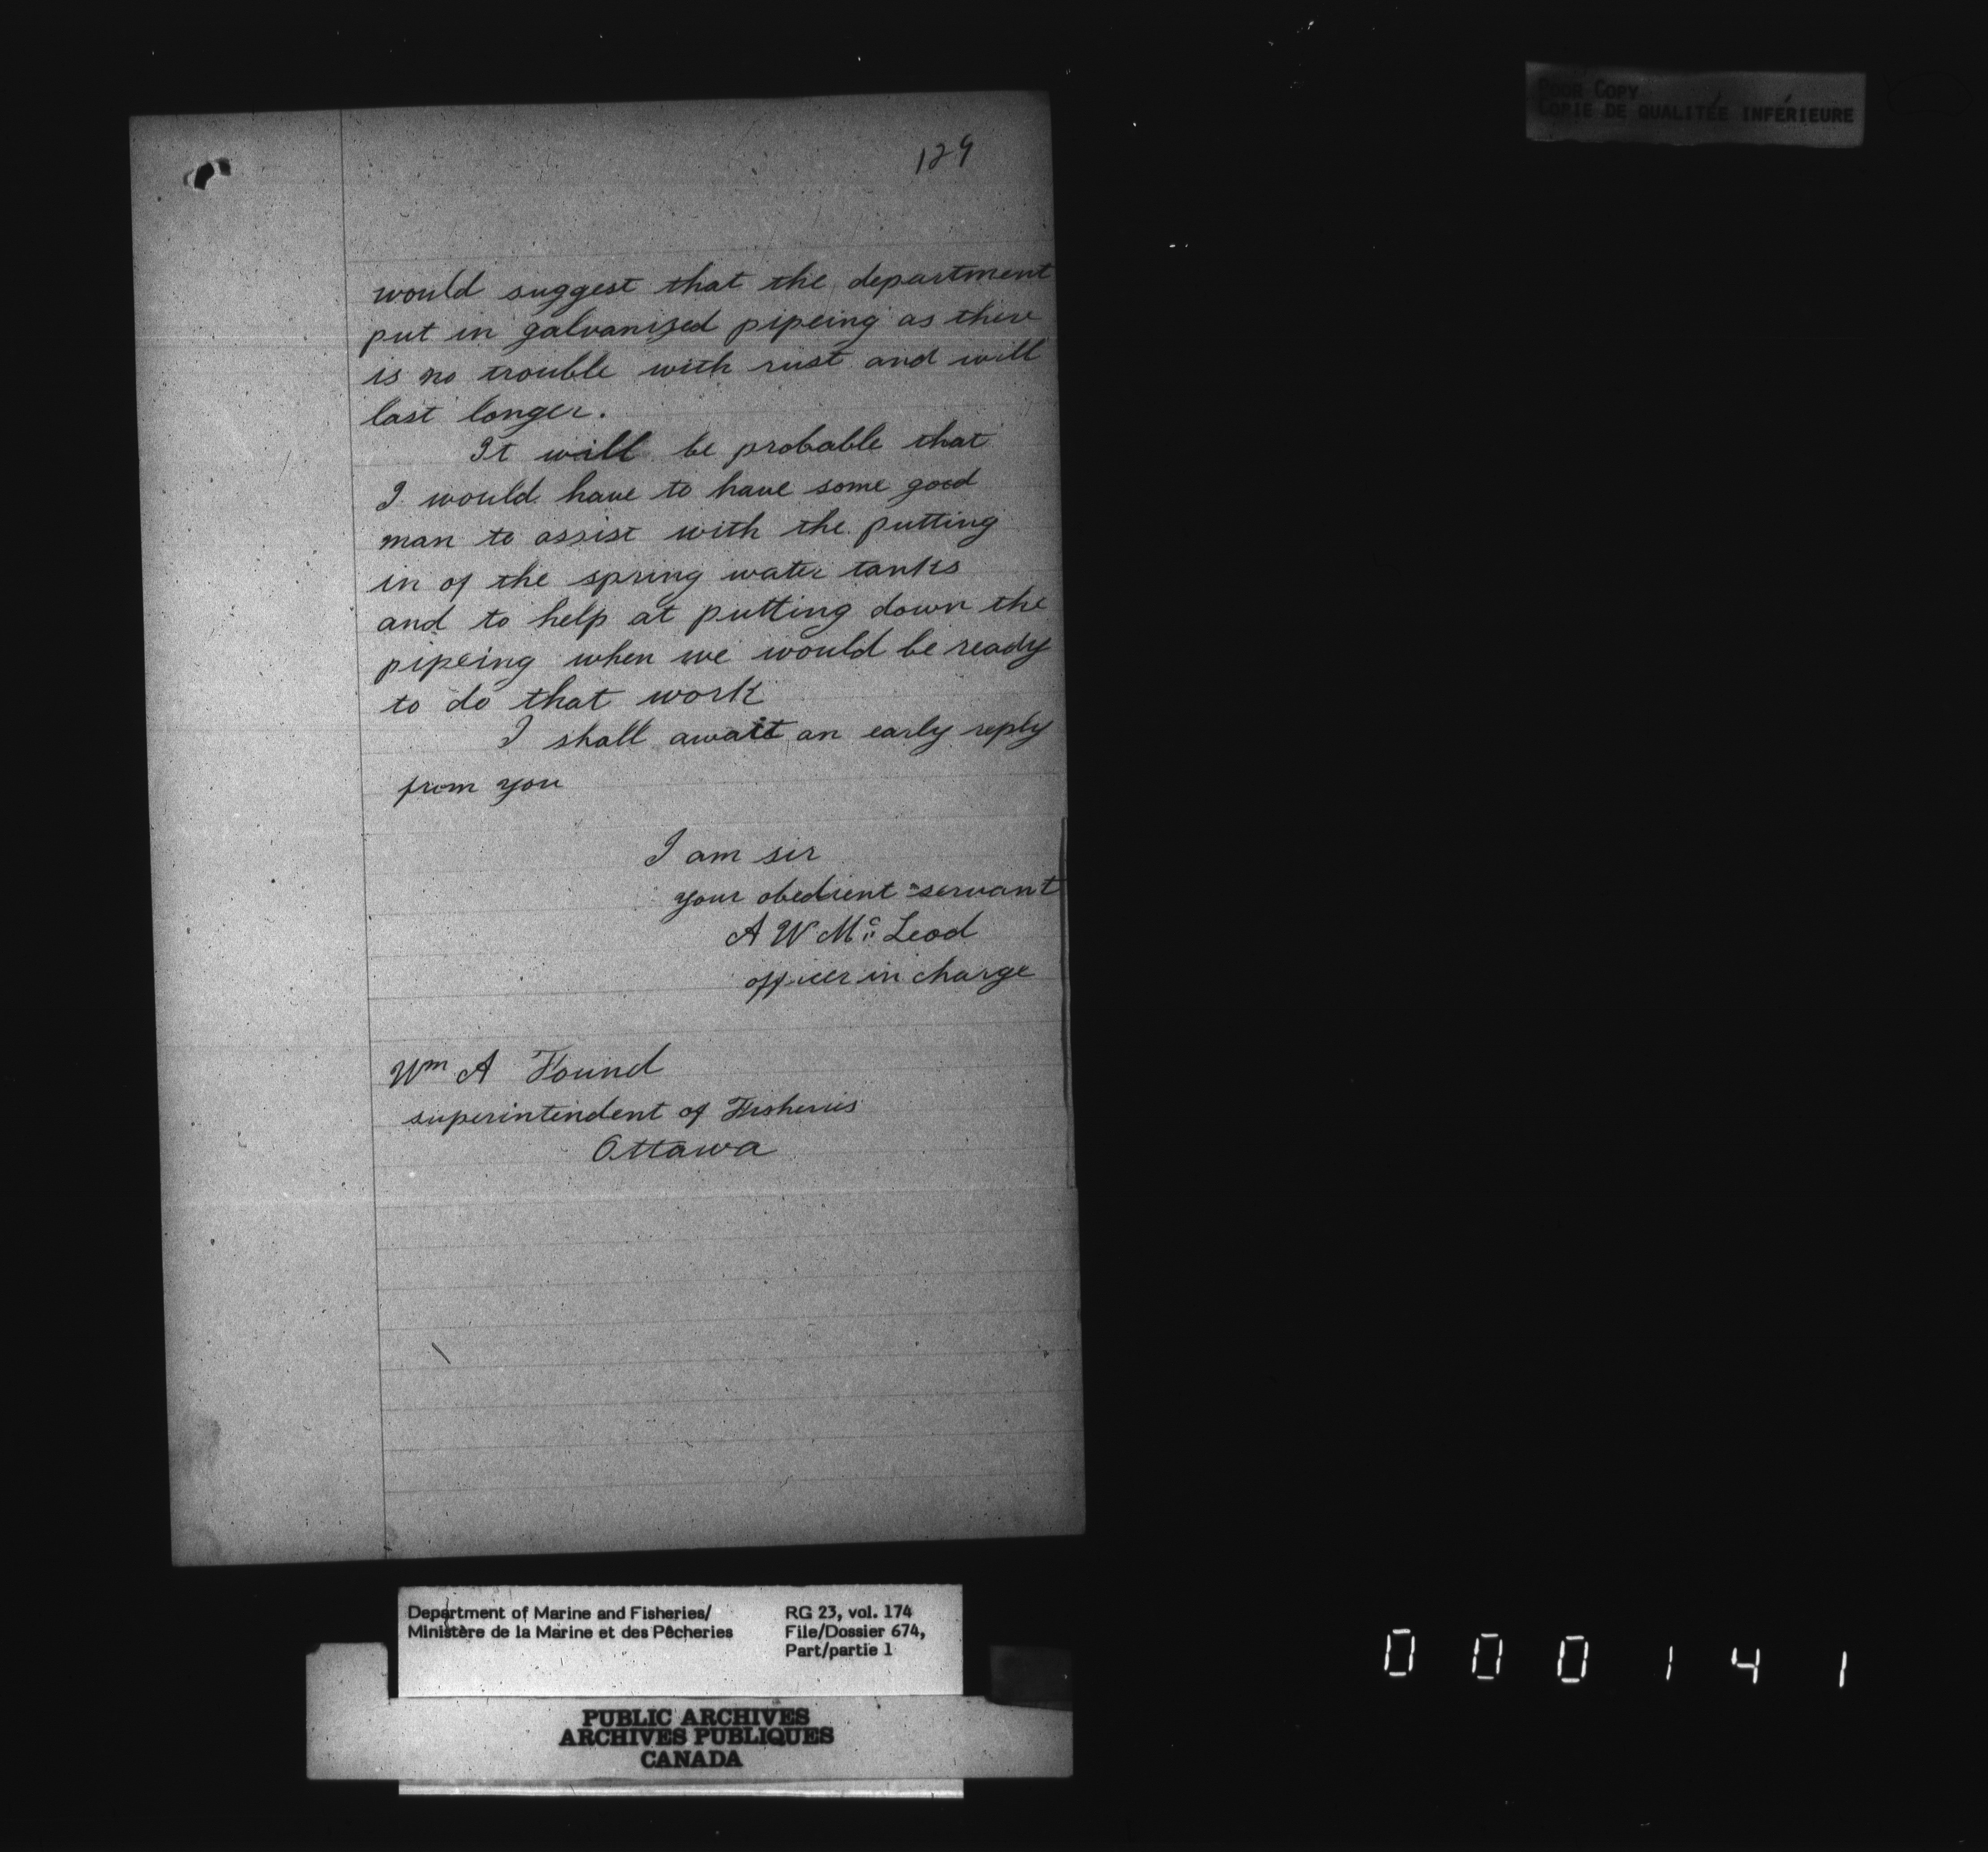 129
would suggest that the department
put in galvanized pipeing as there
is no trouble with rust and will
last longer.
It will be probable that
I would have to have some good
man to assist with the putting
in of the spring water tanks
and to help at putting down the
pipeing when we would be ready
to do that work
I shall await an early reply
from you
I am sir
your obedient servant
A W Mc Leod
officer in charge
Wm A Found
superintendent of Fisheries
Ottawa
Poor Copy
Copie de qualitée inférieure
Department of Marine and Fisheries/
Ministère de la Marine et des Pêcheries
RG 23, vol. 174
File/Dossier 674,
Part/partie 1
PUBLIC ARCHIVES
ARCHIVES PUBLIQUES
CANADA
000141